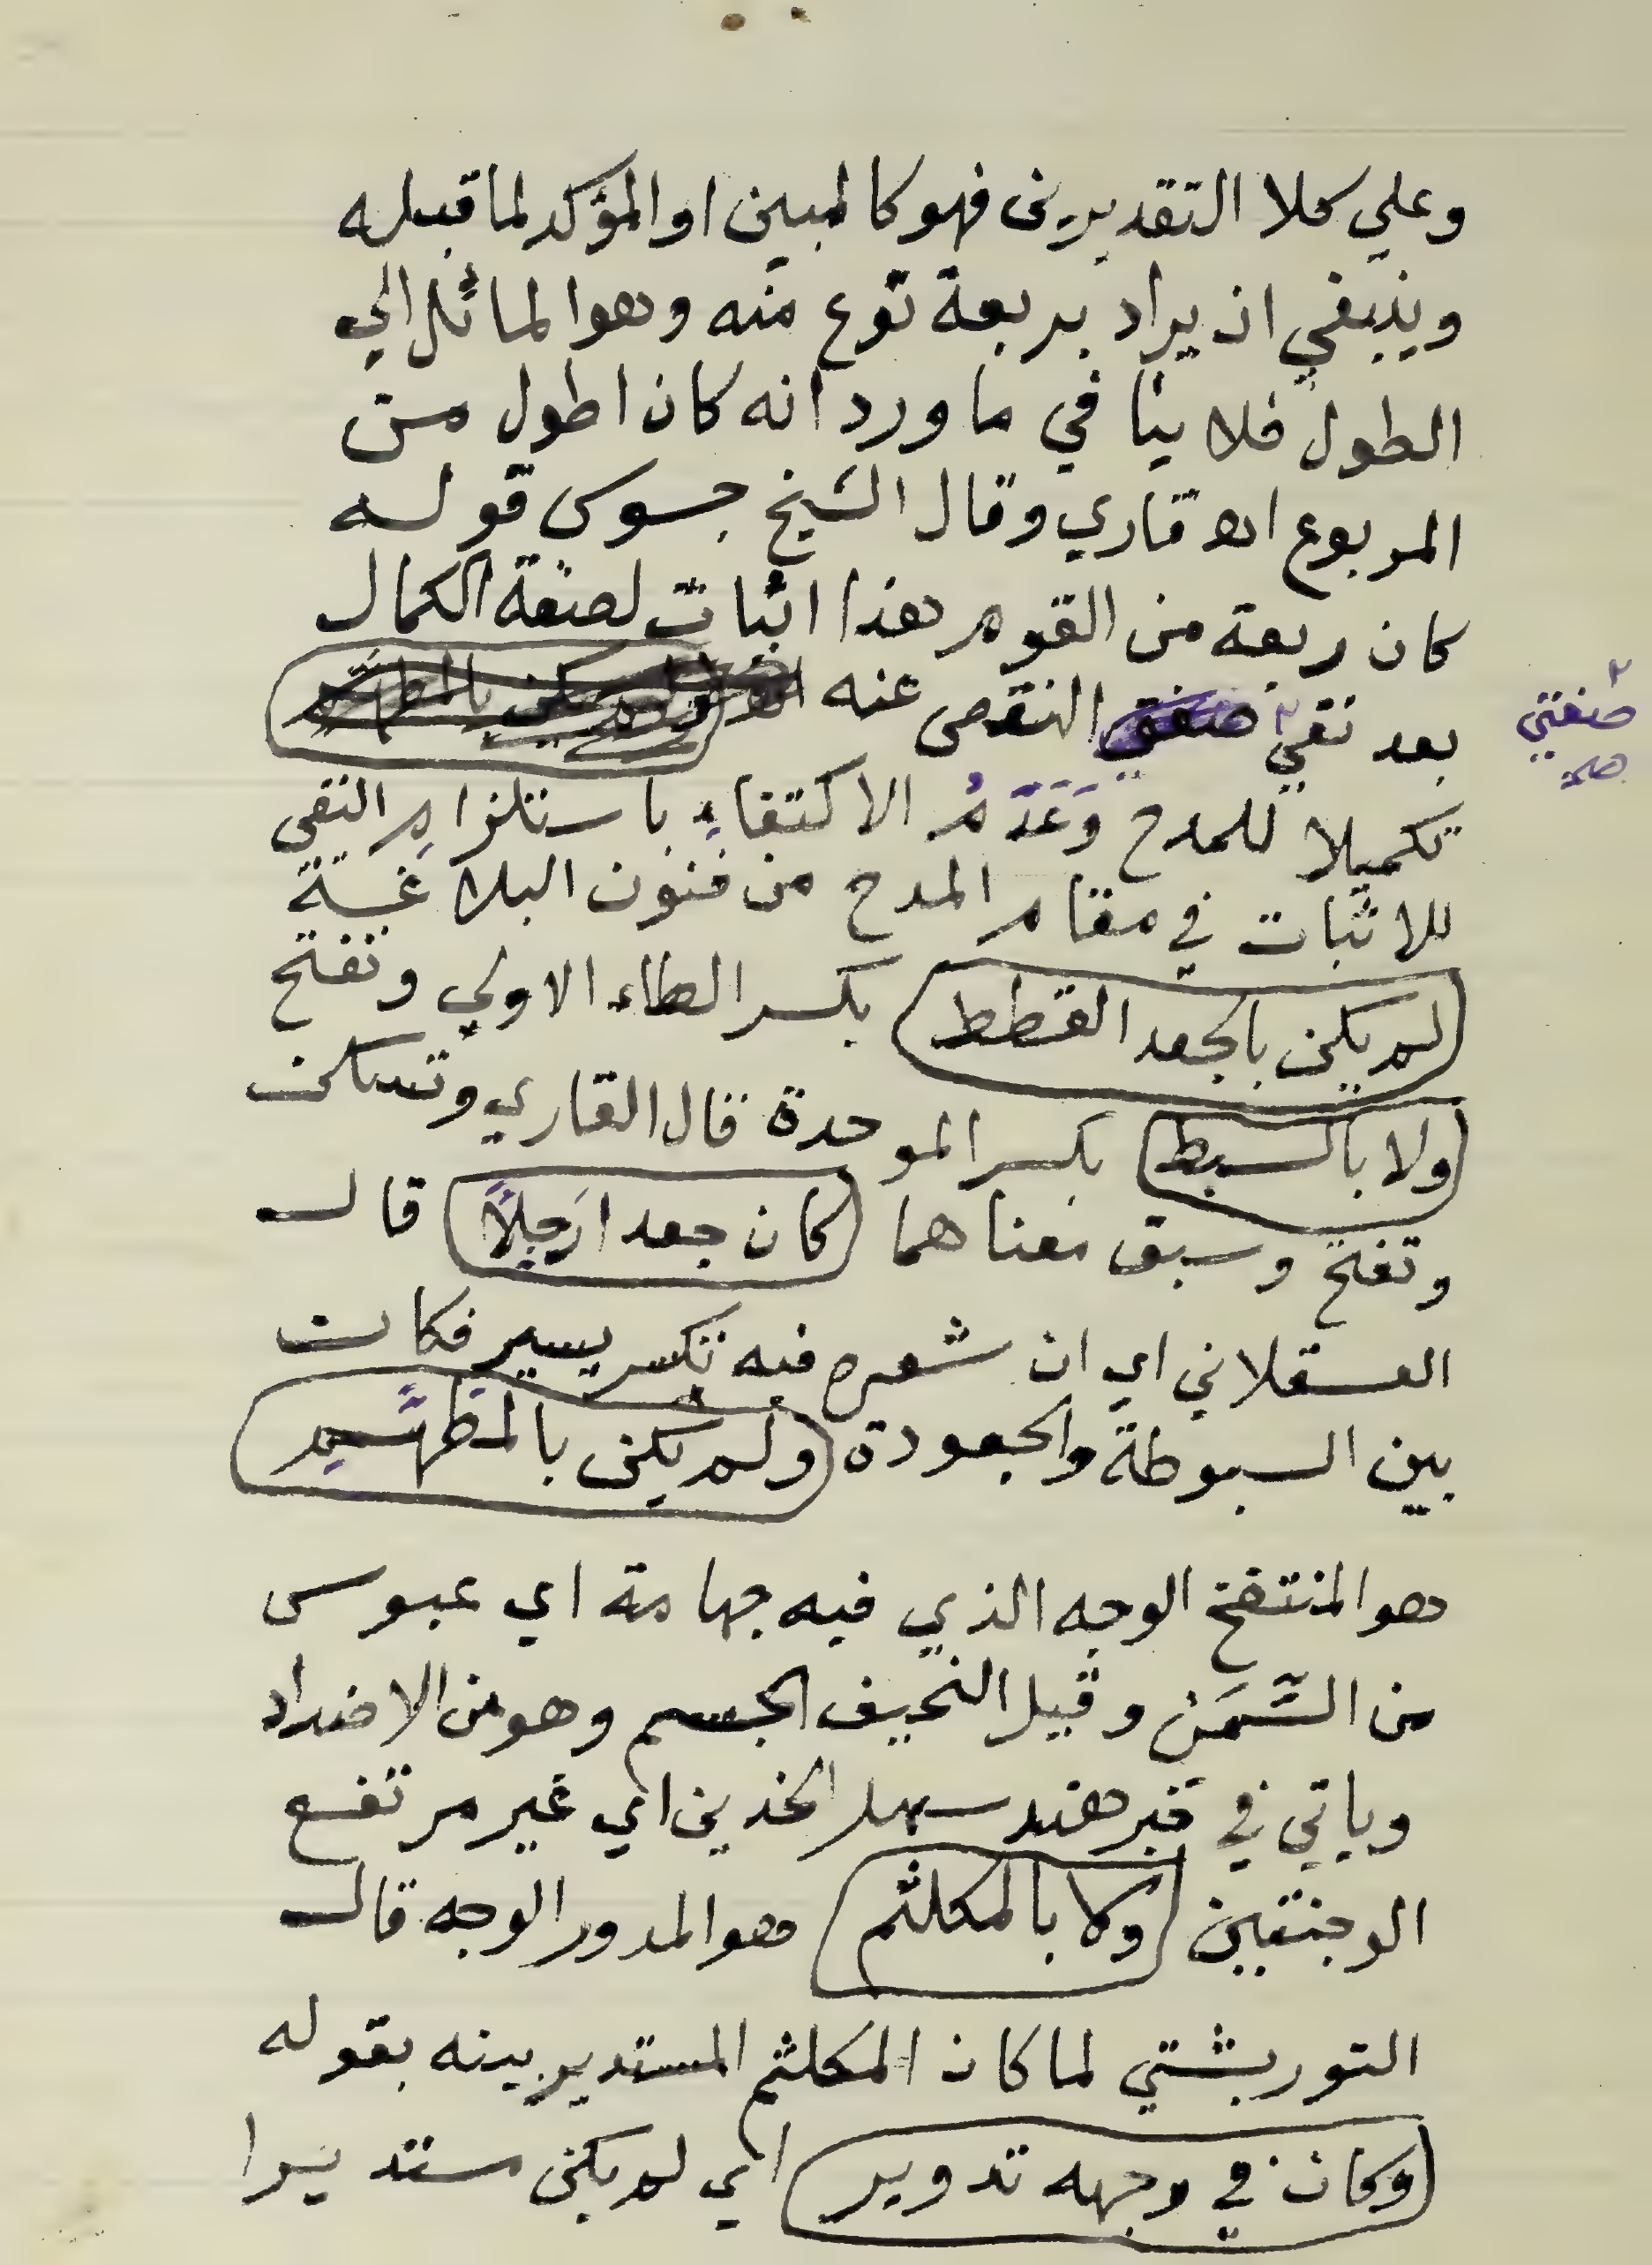 وعلي كلا التقديرين فهو كالمبين او المؤكد لما قبله
وينبغي ان يراد بربعة نوع منه وهو المائل الي
الطول فلا ينافي ما ورد انه كان اطول من
المربوع اهـ قاري وقال الشيخ جسوس قوله
كان ربعة من القوم هذا اثبات لصفة الكمال
بعد نفي النقص عنه
صفتي
صح
تكميلا للمدح وَعَدَمُ الاكتفاءِ باستلزامِ النفي
للاثبات في مقام المدح من فنون البلاغة
لم يكن بالجعد القطط بكسر الطاء الاولي وتفتح
ولا بالسبط بكسر الموحدة قال القاري وتسكن
وتفتح وسبق معناهما كان جعدا رَجِلًا قال
العسقلاني اي ان شعره فيه تكسر يسير فكان
بين السبوطة والجعودة ولم يكن بالمطهَّم
هو المنتفخ الوجه الذي فيه جهامة اي عبوس
من السِّمَن وقيل النحيف الجسم وهو من الاضداد
وياتي في خبر هند سهل الخدين اي غير مرتفع
الوجنتين ولا بالمكلثم هو المدور الوجه قال
التوربشتي لما كان المكلثم المستدير بينه بقوله
وكان في وجهه تدوير اي لم يكن مستديرا